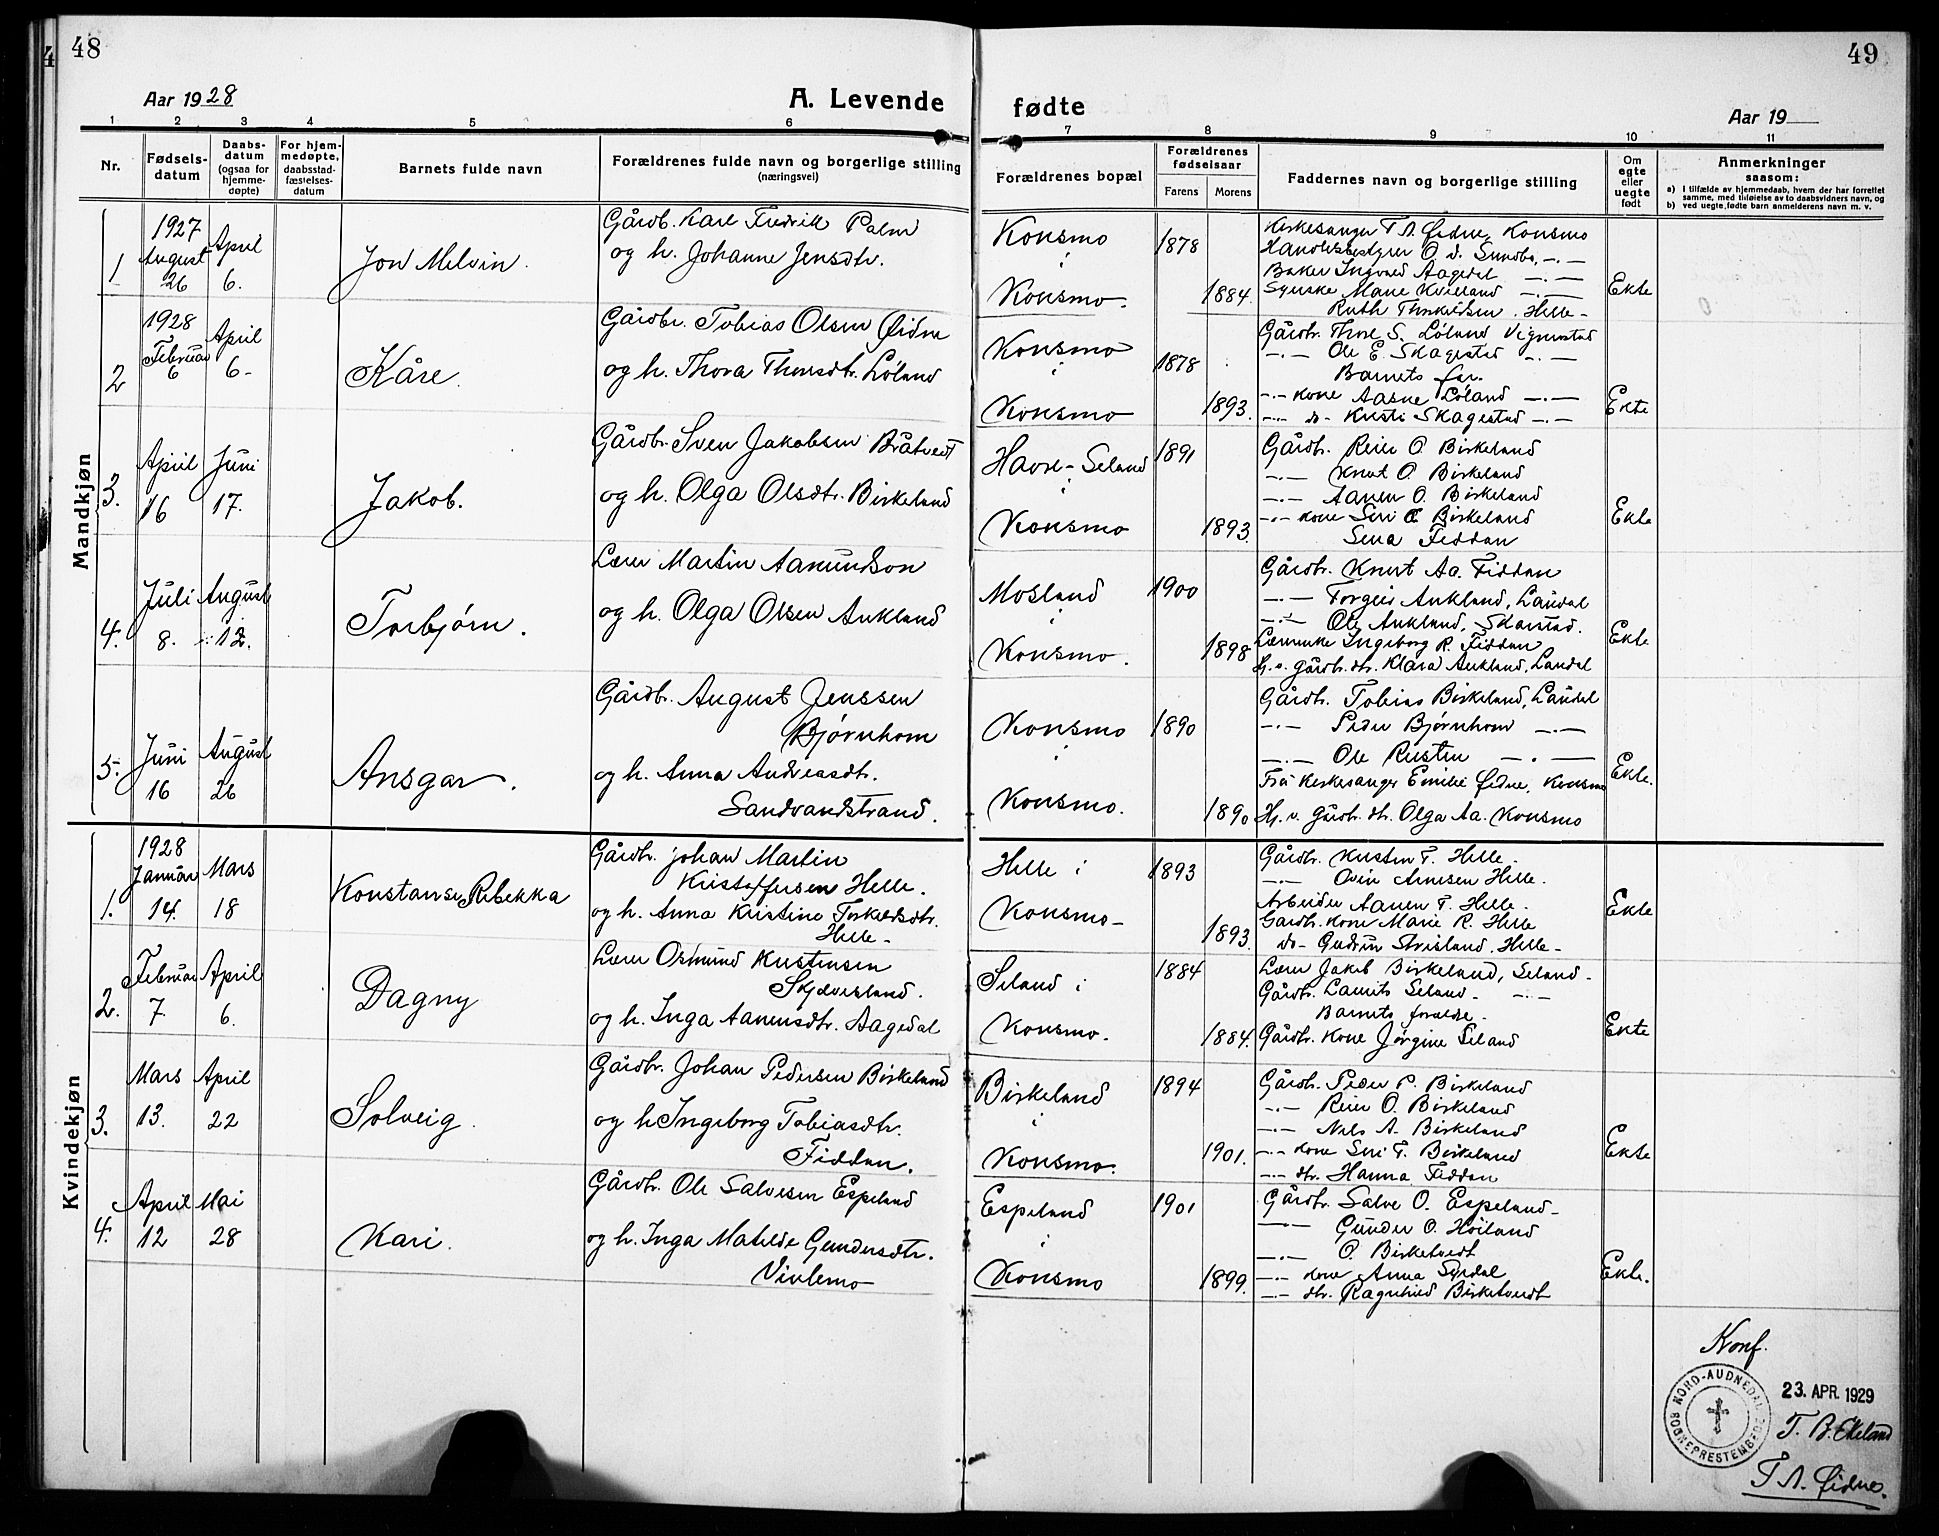 48
Aar 1928
A. Levende
1 2 3 4 5 6
Nr.
Fødsels-
datum
Daabs-
datum
(ogsaa for
hjemme-
døpte)
For hjem-
medøpte,
daabsstad-
fæstelses-
datum
Barnets fulde navn
Forældrenes fulde navn og borgerlige stilling
(næringsvei)
Mandkjøn
1
1927
August
26
April
6.
Jon Melvin.
Gårdb. Karl Fredrik Palm
og h. Johanne Jensdtr.
2
1928
Februar
6
April
6-
Kåre.
Gårdbr. Tobias Olsen Øidne
og h. Thora Thorsdtr. Løland
3.
April
16
Juni
17.
Jakob.
Gårdbr. Sven Jakobsen Bråtvedt
og h. Olga Olsdtr. Birkeland
4.
Juli
8.
August
12.
Torbjørn.
Lærer Martin Aamundson
og h. Olga Olsen Aukland
5.
Juni
16
August
26
Ansgar.
Gårdbr. August Jenssen
Bjørnhom
og h. Anna Andreasdtr.
Sandvandstrand.
Kvindekjøn
1.
1928
Januar
14.
Mars
18
Konstanse Rebekka
Gårdbr. Johan Martin
Kristoffersen Helle.
og h. Anna Kristine Torkeldsdtr.
Helle-
2.
Februar
7.
April
6.
Dagny
Lærer Osmund Kristensen
Skjævesland.
og h. Inga Aanensdtr. Aagedal
3.
Mars
13.
April
22
Solveig.
Gårdbr. Johan Pedersen Birkeland
og h Ingeborg Tobiasdtr.
Fiddan.
4.
April
12
Mai
28
Kari.
Gårdbr. Ole Salvesen Espeland
og h. Inga Matilde Gundersdtr.
Vivlemo
49
fødte
Aar 19
7 8 9 10 11
Forældrenes bopæl
Forældrenes
fødselsaar
Farens
Morens
Faddernes navn og borgerlige stilling
Om
egte
eller
uegte
født
Anmerkninger
saasom:
a) I tilfælde av hjemmedaab, hvem der har forrettet
samme, med tilføielse av to daabsvidners navn, og
b) ved uegte fødte barn anmelderens navn m. v.
Konsmo
i
Konsmo.
1878
1884.
Kirkesanger T A. Øidne, Konsmo
Handelsbestyrer O. d. Sundbø, -.-
Baker Ingvald Aagedal -.-
Syerske Marie Kvilland -.-
Ruth Thorkildsen. Helle-
Ekte
Konsmo
i
Konsmo
1878
1893.
Gårdbr. Thore S. Løland Vigmostad
-.- Ole E. Skagestad -.-
Barnets far.
-.- kone Aasne Løland -.-
-.- d- Kristi Skagestad -.-
Ekte
Havre-Seland
i
Konsmo
1891
1893.
Gårdbr. Reier O. Birkeland
-.- Knut O. Birkeland
-.- Aanen O. Birkeland
-.- kone Siri Birkeland
Sena Fiddan
Ekte
Mosland
i
Konsmo.
1900
1898
Gårdbr. Knut Aa. Fiddan
-.- Torgeir Aukland, Laudal
-.- Ole Aukland, Skarstad.
Lærerinke Ingeborg R. Fiddan
h.v. gårdbr. dtr. Klara Aukland, Laudal
Ekte
Konsmo
i
Konsmo.
1890
1890
Gårdbr. Tobias Birkeland, Laudal
-.- Peder Bjørnhom -.-
-.- Ole Rustin -.-
Fru Kirkesanger Emilie Øidne, Konsmo
Hj. v. Gårdbr. dtr. Olga Aa. Konsmo
Ekte.
Helle i
Konsmo-
1893
1893.
Gårdbr. Kristen T. Helle.
-.- Ovin Arnesen Helle.
Arbeider Aanen T. Helle.
Gårdbr. kone Marie R. Helle
do- Gudrun Strisland. Helle-
Ekte
Seland i
Konsmo.
1884
1884.
Lærer Jakob Birkeland, Seland-
Gårdbr. Laurits Seland- -.-
Barnets foreldre-
Gårdbr. kone Jørgine Seland
Ekte
Birkeland
i
Konsmo.
1894
1901.
Gårdbr. Peder P. Birkeland
-.- Reier O. Birkeland
-.- Nils A. Birkeland
-.- kone Siri T. Birkeland
-.- dtr. Hanna Fiddan
Ekte
Espeland
i
Konsmo
1901
1899.
Gårdbr. Salve O. Espeland-
-.- Gunder O. Høiland
-.- O. Birketvedt
-.- kone Anna Syrdal
-.- dtr. Ragnhild Birketvedt
Ekte.
Konf.
NORD-AUDNEDAL
SOGNEPRESTEMBEDE
23. APR. 1929
T. B. Ekeland
T A. Øidne.